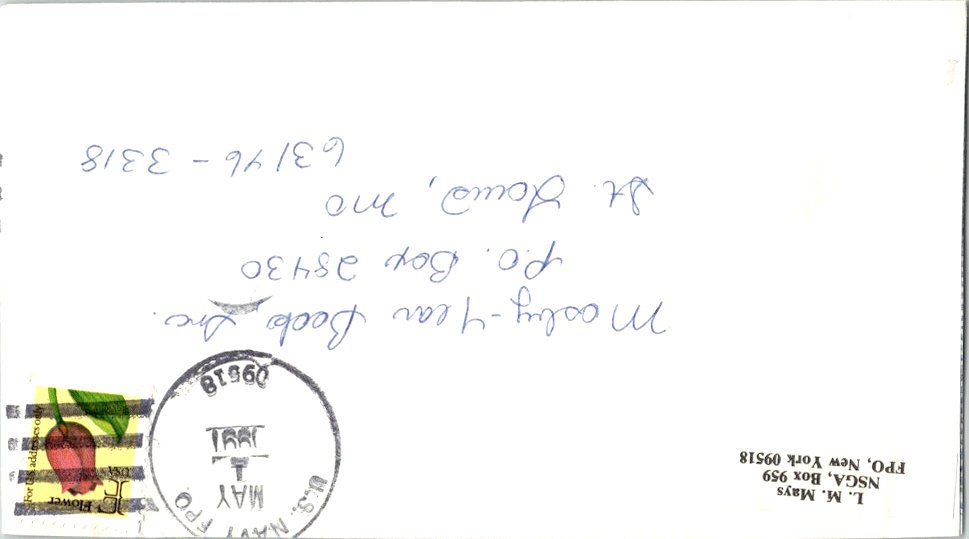 L. M. Mays
NSGA, Box 959
FPO, New York 09518
U.S. NAVY FPO
MAY
1
1991
09518
Flower
USA
For U.S. addresses only
Mosby-Year Book, Inc.
P.O. Box 28430
St. Louis, MO
63146-3318